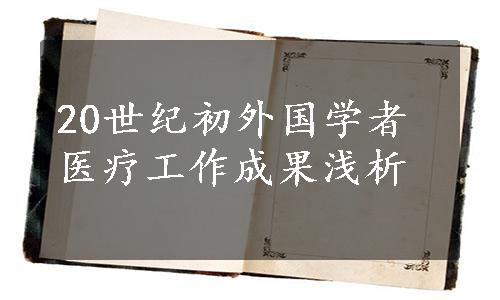 20世纪初外国学者
医疗工作成果浅析